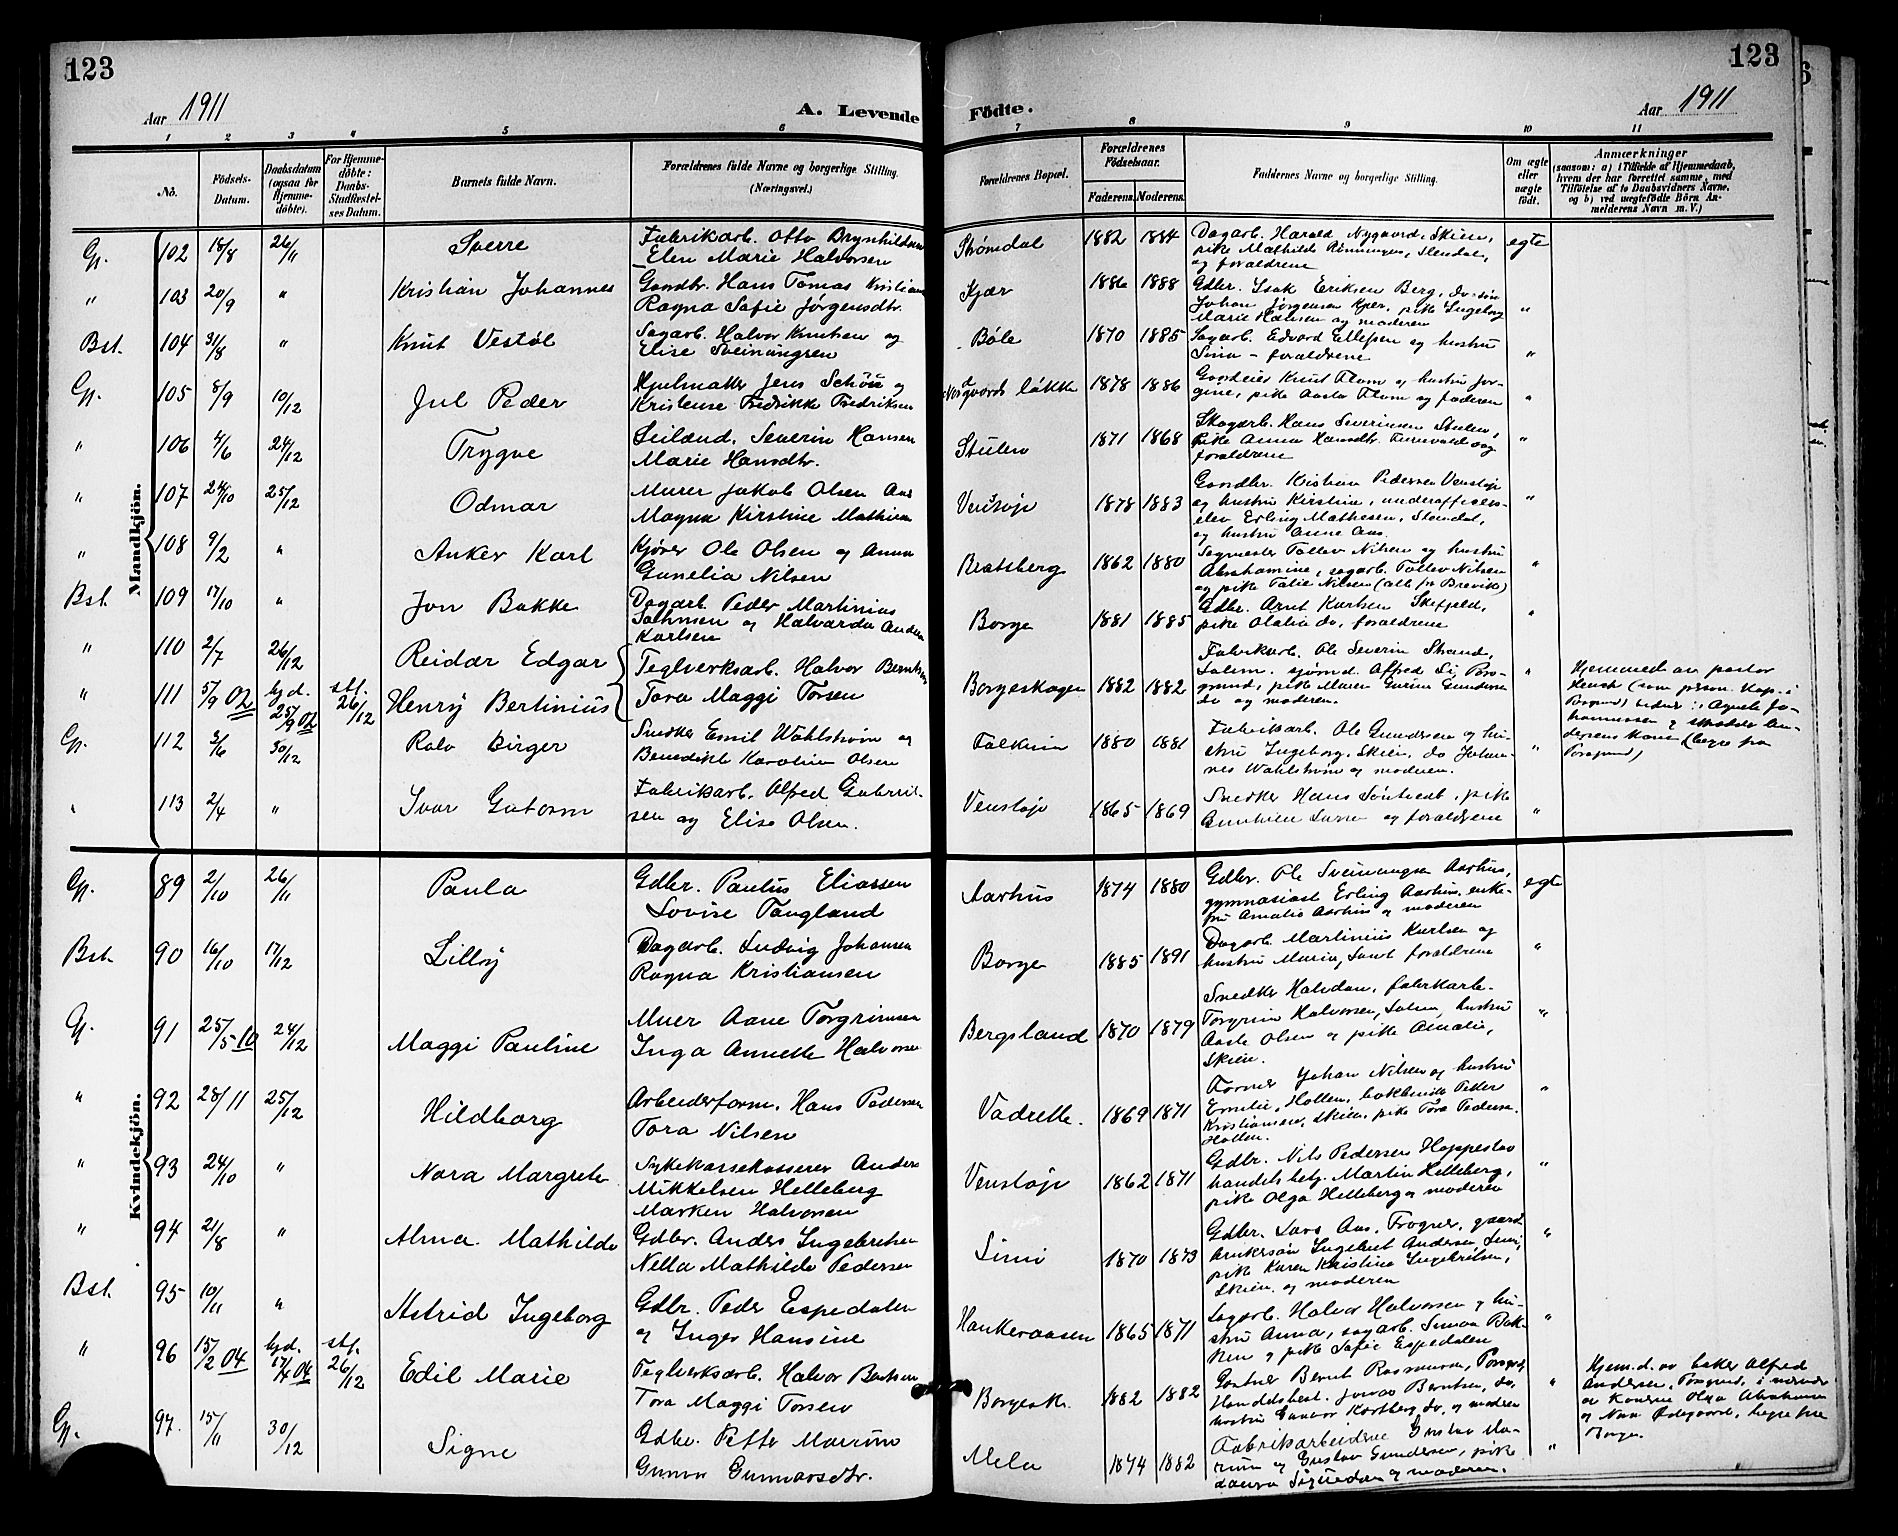 123
Aar 1911
A. Levende
Födte.
Aar 1911
123
1 2 3 4 5 6 7 8 9 10 11
No.
Födsels-
Datum.
Daabsdatum
(ogsaa for
Hjemme-
döbte).
For Hjemme-
döbte:
Daabs-
Stadfestel-
ses Datum.
Barnets fulde Navn.
Forældrenes fulde Navne og borgerlige Stilling.
(Næringsvei.)
Forældrenes Bopæl.
Forældrenes
Födselsaar.
Faderens. Moderens.
Faddernes Navne og borgerlige Stilling.
Om ægte
eller
uægte
födt.
Anmærkninger
(saasom: a) i Tilfælde af Hjemmedaab,
hvem der har forrettet samme, med
Tilföielse af to Daabsvidners Navne,
og b) ved uægtefödte Börn An-
melderens Navn m. V.)
Mandkjön.
Gp. 102 18/8 26/11 Sverre
Fabrikarb. Otto Brynhildsen
Elen Marie Halvorsen
Strømdal 1882 1884
Dagarb. Harald Nygaard, Skien,
pike Mathilde Rønningen, Slendal,
og forældrene
egte
" 103 20/9 " Kristian Johannes
Gaardbr. Hans Tomas Kristians
Ragna Sofie Jørgensdtr.
Kjær 1886 1888
Gdbr. Isak Eriksen Berg,
Johan Jørgensen Kjær, pike Ingeborg
Marie Hansen og moderen
"
Bst. 104 31/8 " Knut Vestøl
Sagarb. Halvor Knutsen og
Elise Sveinungren
Bøle 1870 1885
Sagarb. Edvard Ellefsen og hustru
Sina - forældrene
"
Gp. 105 8/9 10/12 Jul Peder
Hjulmaker Jens Schöu og
Kristense Fredrikke Fredriksen
løkke 1878 1886
Gaardeier Knut Flom og hustru Jor-
gine, pike Aasta Flom og faderen
"
" 106 4/6 24/12 Trygve
Leilænd. Severin Hansen
Marie Hansdtr.
Stulen 1871 1868
Skogarb. Hans Severinsen Stulen,
pike Anna Hansdtr. og
forældrene
"
" 107 24/10 25/12 Odmar
Murer Jakob Olsen Aas
Magna Kirstine Mathisen
Venstøp 1878 1883
Gaardbr. Kristian Pedersen Venstøp
og hustru Kirstine, underofficers-
elev Erling Mathisen, Slendal,
og hustru Anne Aas.
"
" 108 9/2 " Anker Karl
Kjører Ole Olsen og Anna
Gunelia Nilsen
Bratsberg 1862 1880
Sagmester Tollev Nilsen og hustru
Abrahamine, sagarb. Tollev Nilsen
og pike Talie Nilsen (alle fr Brevik)
"
Bst. 109 17/10 " Jon Bakke
Dagarb. Peder Martinius
og Halvarda Anden
Karlsen
Borge 1881 1885
Gdbr. Arnt Karlsen Skifjeld,
pike Olalia do, forældrene
"
" 110 2/7 26/12 Reidar Edgar
Teglverksarb. Halvor Berntsen
" 111 5/9 02 hjd. 25/9 02 stf. 26/12 Henry Bertinius
Tora Maggi Torsen
Borgeskogen 1882 1882
Fabrikarb. Ole Severin Strand,
Solum, sjømd. Alfred Por-
grund, pike Maren Gurine Gundersen
do og moderen.
"
Hjemmed. av pastor
Hersch (som person. kap. i
Porsgrund) vidner: Agnete Jo-
hannessen og skredder An-
dersens kone (begge fra
Porsgrund)
Gp. 112 3/6 30/12 Rolv Birger
Snedker Emil Wahlstrøm og
Benedikte Karoline Olsen
Falkum 1880 1881
Fabrikarb. Ole Gundersen og hu-
stru Ingeborg, Skien, do Johan-
nes Wahlstrøm og moderen.
"
" 113 2/4 " Ivar Gutorm
Fabrikarb. Alfred Gabriel-
sen og Elise Olsen.
Venstøp 1865 1869
Snedker Hans , pike
og forældrene
"
Kvindekjön.
Gp. 89 2/10 26/11 Paula
Gdbr. Paulus Eliassen
Lovise Tangland
Aarhus 1874 1880
Gdbr. Ole Sveinungsen Aarhus,
gymnasiast Erling Aarhus, enke-
fru Amalie Aarhus og moderen
egte
Bst. 90 16/10 17/12 Lilly
Dagarb. Ludvig Johansen
Ragna Kristiansen
Borge 1885 1891
Dagarb. Martinius Karlsen og
hustru Maria, samt forældrene
"
Gp. 91 25/5 10 24/12 Maggi Pauline
Murer Aane Torgrimsen
Inga Annette Halvorsen
Bergsland 1870 1879
Snedker Halvdan, fabrikarb.
Torgrim Halvorsen, Solum, hustru
Aaste Olsen og pike Amalie,
Skien.
"
" 92 28/11 25/12 Hildborg
Arbeiderform. Hans Pedersen
Tora Nilsen
Vadrette. 1869 1871
Former Johan Nilsen og hustru
Emilie, Hollen, bokbinder Peder
Kristiansen, Skien, pike Tora Pedersen
Hollen.
"
" 93 24/10 " Nora Margrete
Sykekassekasserer Anders
Mikkelsen Helleberg
Marken Halvorsen
Venstøp 1862 1871
Gdbr. Nils Pedersen Hoppestad
handelsbetj. Martin Helleberg,
pike Olga Helleberg og moderen
"
" 94 21/8 " Alma Mathilde
Gdbr. Anders Ingebretsen
Nella Mathilde Pedersen
Limi 1870 1873
Gdbr. Lars Aas, Frogner, gaard-
brukersøn Ingebret Andersen Limi,
pike Karen Kristine Ingebritsen,
Skien og moderen
"
Bst. 95 10/11 " Astrid Ingeborg
Gdbr. Peder Espedalen
og Inger Hansine
Haukeraasen 1865 1871
Sagarb. Halvor Halvorsen og hu-
stru Anna, sagarb. Simon Bak-
ken og pike Sofie Espedalen
"
" 96 15/2 04 hjd. 17/4 04 stf. 26/12 Edil Marie
Teglverksarb. Halvor Berntsen
Tora Maggi Torsen
Borgesk. 1882 1882
Gartner Bernt Rasmussen, Porsgrd,
Handelsbest. Jonas Berntsen, do,
hustru Gunvor Kortberg do, og moderen
"
Hjem.d. av baker Alfred
Andersen, Porsgrund, i nærvær
av konerne Olga Abrahamsen
og Nora Ødegaard, begge fra
Borge.
Gp. 97. 15/11 30/12 Signe
Gdbr. Petter Maurino
Gunva Gunnarsdtr.
Mela 1874 1882
Fabrikarbeiderne Gustav Ma-
rum og Gustav Gundersen, pike
Signedan og moderen.
"